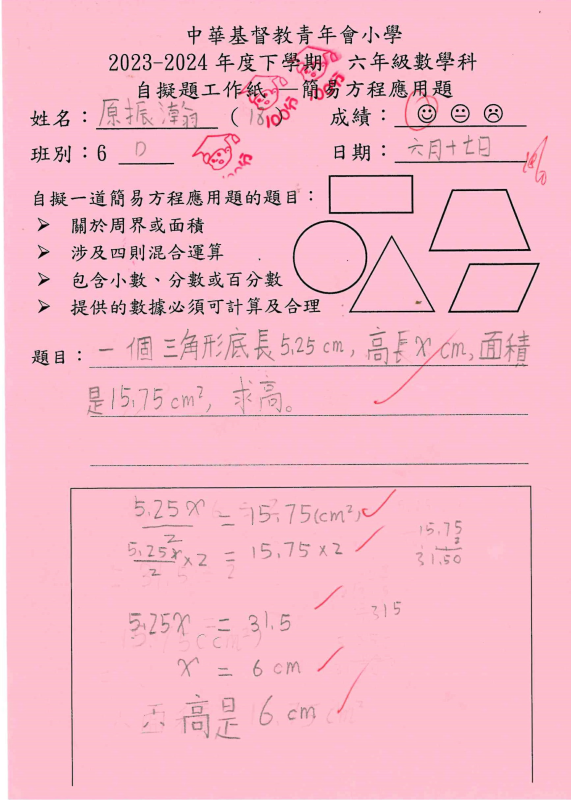 中華基督教青年會小學
2023-2024 年度下學期 六年級數學科
自擬題工作紙 — 簡易方程應用題
姓名：原振瀚 (18) 成績：
班別：6 D 日期：六月十七日
自擬一道簡易方程應用題的題目：
➤ 關於周界或面積
➤ 涉及四則混合運算
➤ 包含小數、分數或百分數
➤ 提供的數據必須可計算及合理
題目：一個三角形底長5.25 cm, 高長 x cm, 面積
是15.75 cm², 求高。
5.25x/2 = 15.75(cm²)
5.25x/2 ×2 = 15.75×2
15.75
2
31.50
5.25x = 31.5
315
x = 6 cm
∴ 高是 6 cm